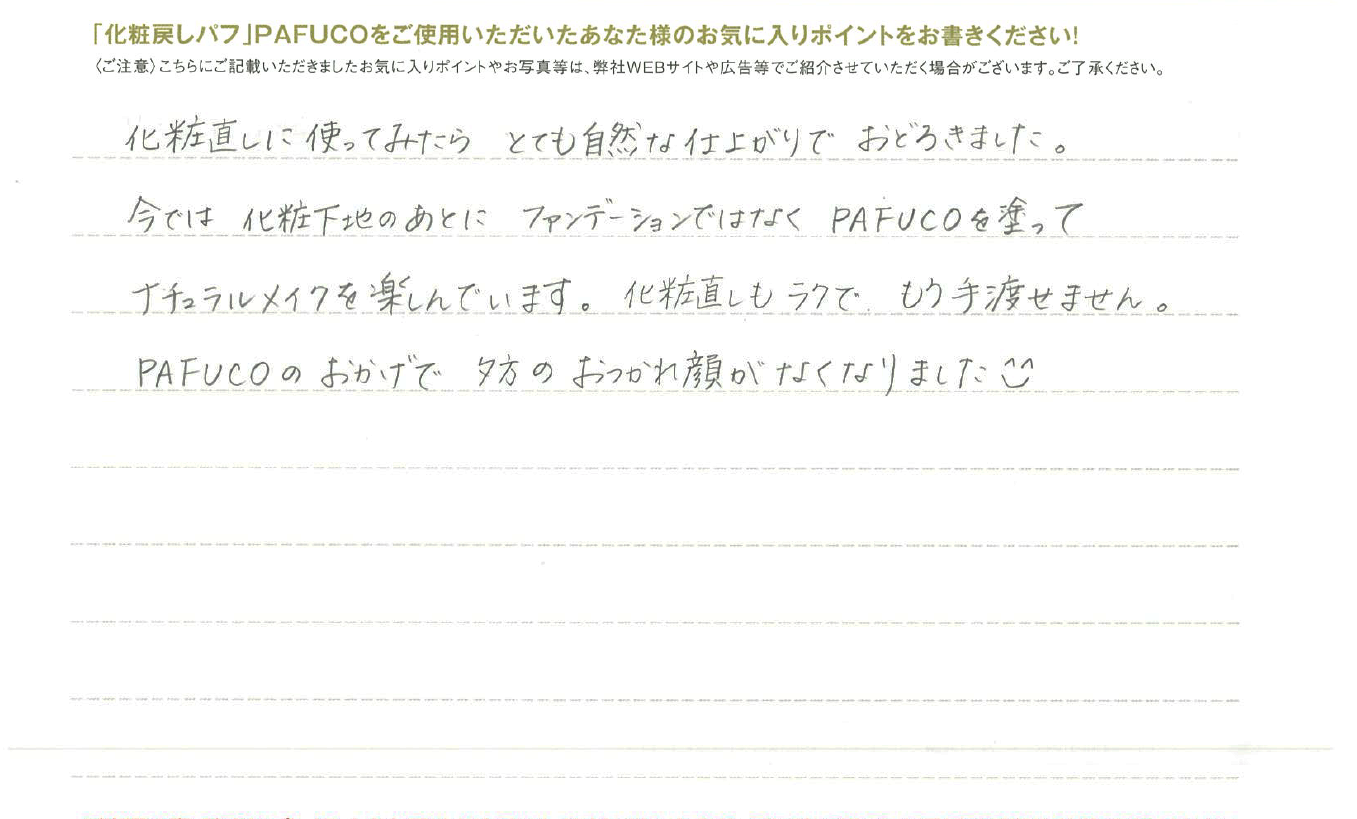 「化粧戻しパフ」PAFUCOをご使用いただいたあなた様のお気に入りポイントをお書きください!
〈ご注意〉こちらにご記載いただきましたお気に入りポイントやお写真等は、弊社WEBサイトや広告等でご紹介させていただく場合がございます。ご了承ください。
化粧直しに使ってみたら とても自然な仕上がりで おどろきました。
今では 化粧下地のあとに ファンデーションではなく PAFUCOを塗って
ナチュラルメイクを楽しんでいます。化粧直しも ラクで、もう手渡せません。
PAFUCOの おかげで 夕方の おつかれ顔が なくなりました